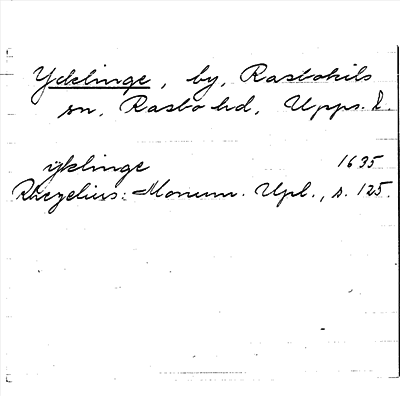 Ycklinge, by, Rasbokils
sn, Rasbo hd, Upps. l.
ijklinge 1635
Rhezelius: Monum. Upl., s. 125.